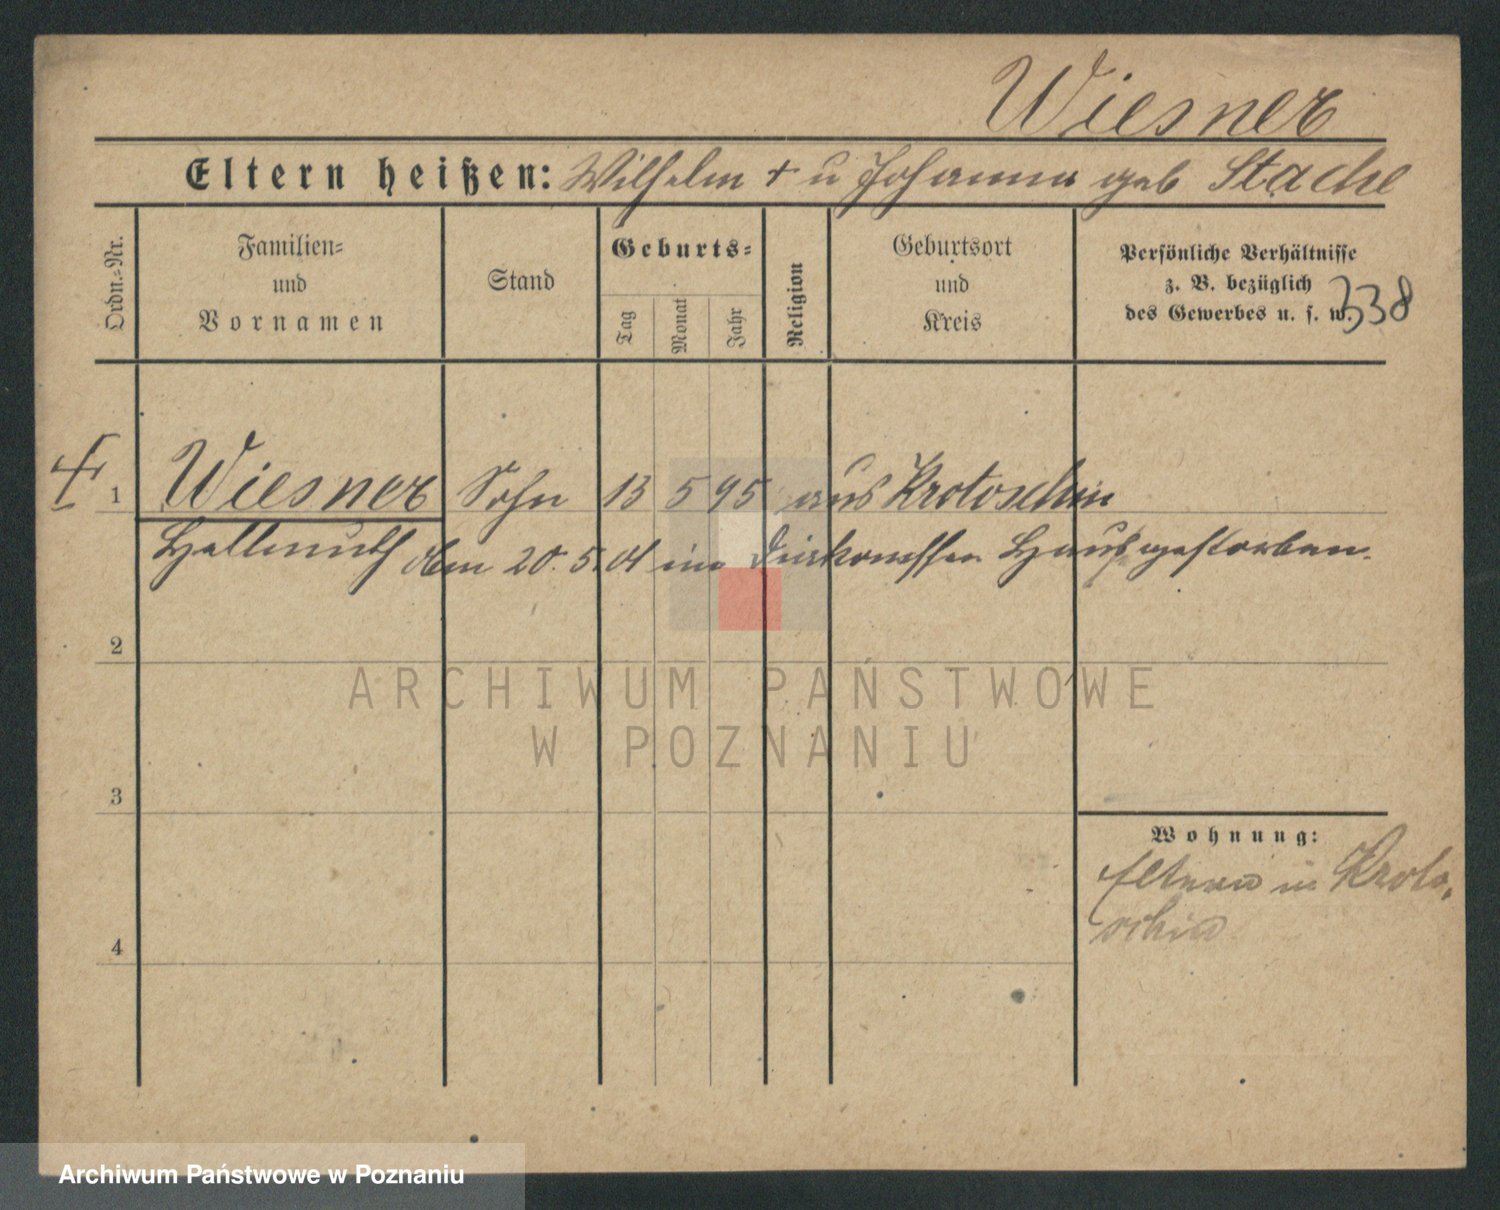 Wiesner
Eltern heißen: Wilhelm + u Johanna geb Stache
Ordn.-Nr.
Familien-
und
Vornamen
Stand
Geburts-
Tag
Monat
Jahr
Religion
Geburtsort
und
Kreis
Persönliche Verhältnisse
z. B. bezüglich
des Gewerbes u. s. w.
338
1 Wiesner Sohn 13 5 95 aus Krotoschin
Hellmuth Am 20. 5. 01 im Diakonissen Haus gestorben.
2
ARCHIWUM PAŃSTWOWE
W POZNANIU
3
Wohnung:
Eltern in Kroto-
schin
4
Archiwum Państwowe w Poznaniu